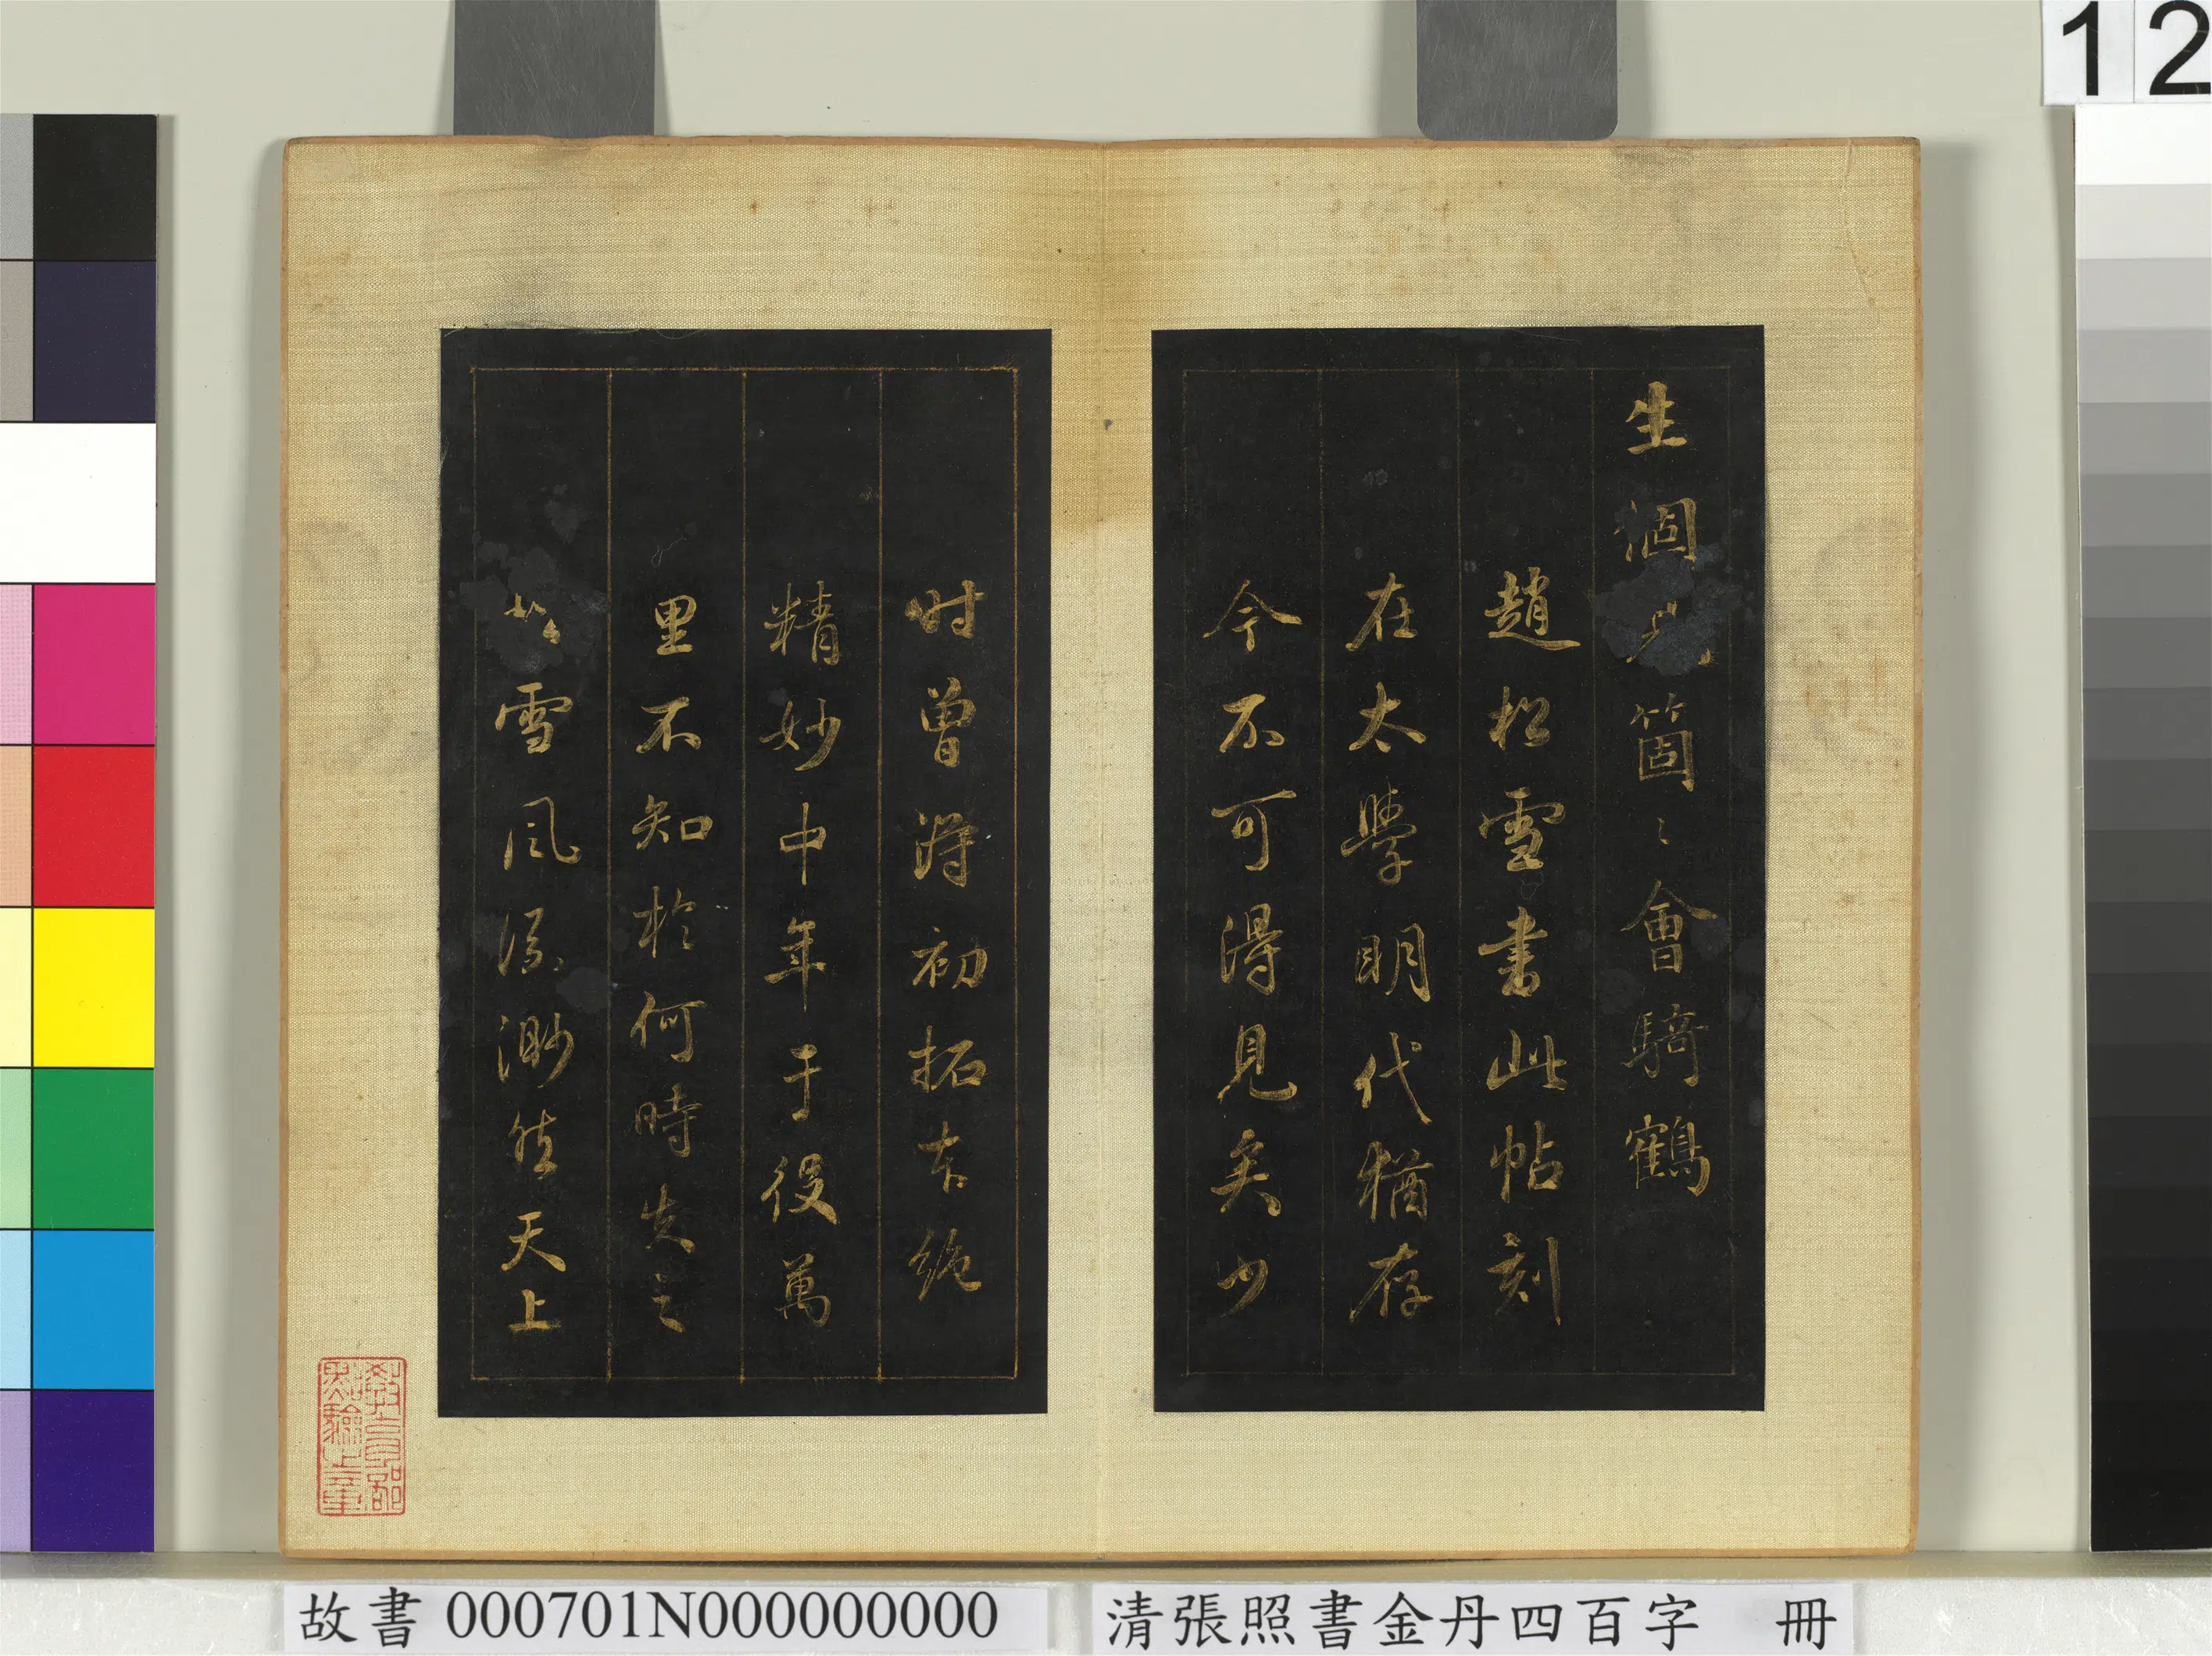 12
生個兒箇〻會騎鶴
趙松雪書此帖刻
在太學明代猶存
今不可得見矣少
时曾淂初拓本絶
精妙中年于役萬
里不知於何時失之
松雪風流渺然天上
教育部點驗之章
故書 000701N000000000
清張照書金丹四百字 冊